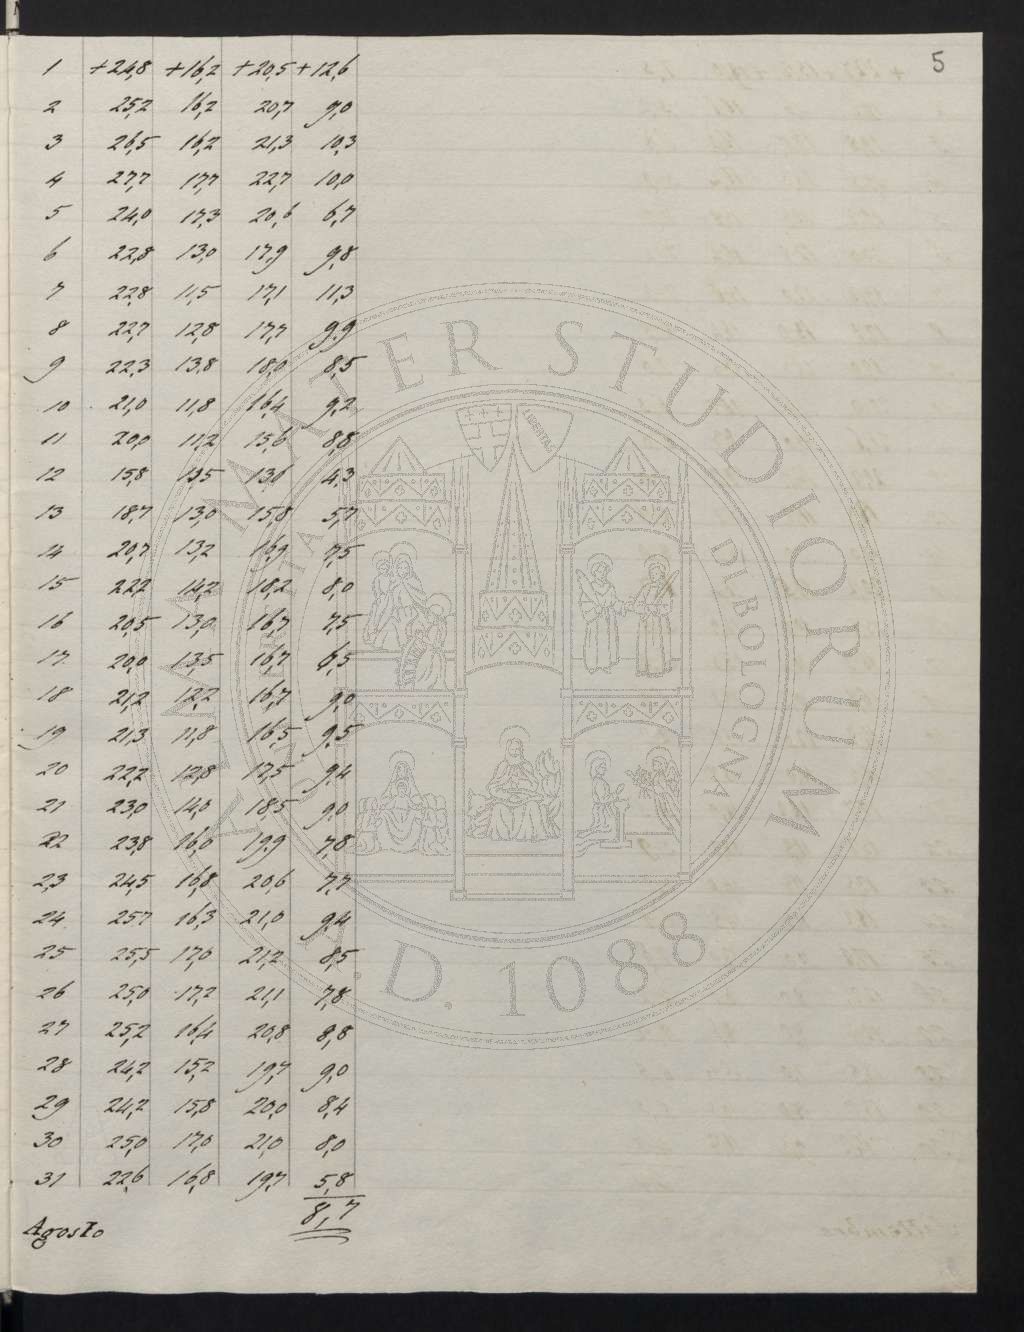 5
1 +24,8 +16,2 +20,5 +12,6
2 25,2 16,2 20,7 9,0
3 26,5 16,2 21,3 10,3
4 27,7 17,7 22,7 10,0
5 24,0 17,3 20,6 6,7
6 22,8 13,0 17,9 9,8
7 22,8 11,5 17,1 11,3
8 22,7 12,8 17,7 9,9
9 22,3 13,8 18,0 8,5
10 21,0 11,8 16,4 9,2
11 20,0 11,2 15,6 8,8
12 15,8 11,5 13,6 4,3
13 18,7 13,0 15,8 5,7
14 20,7 13,2 16,9 7,5
15 22,2 14,2 18,2 8,0
16 20,5 13,0 16,7 7,5
17 20,0 13,5 16,7 6,5
18 21,2 12,2 16,7 9,0
19 21,3 11,8 16,5 9,5
20 22,2 12,8 17,5 9,4
21 23,0 14,0 18,5 9,0
22 23,8 16,0 19,9 7,8
23 24,5 16,8 20,6 7,7
24 25,7 16,3 21,0 9,4
25 25,5 17,0 21,2 8,5
26 25,0 17,2 21,1 7,8
27 25,2 16,4 20,8 8,8
28 24,2 15,2 19,7 9,0
29 24,2 15,8 20,0 8,4
30 25,0 17,0 21,0 8,0
31 22,6 16,8 19,7 5,8
8,7
Agosto
ALMA MATER STUDIORUM
A.D. 1088
LIBERTAS
DI BOLOGNA